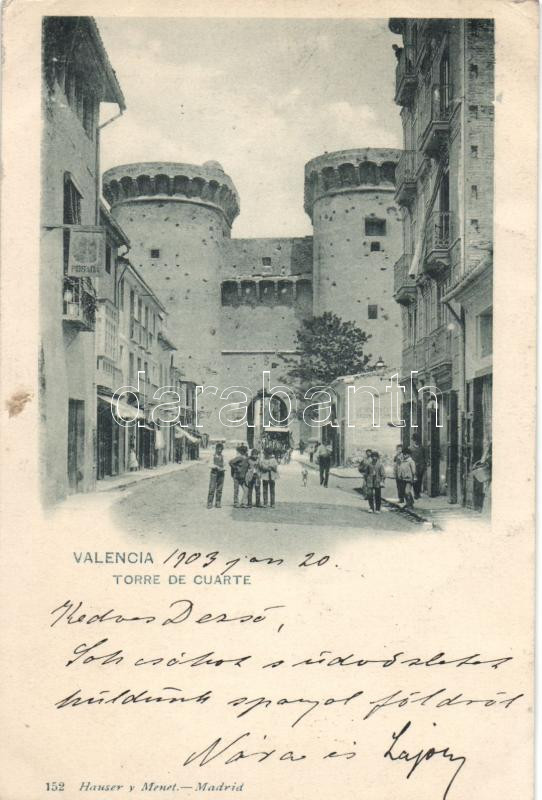 POSADA
darabanth
VALENCIA 1903 jan 20.
TORRE DE CUARTE
Kedves Dezső,
Sok csókot s üdvözletet
küldünk spanyol földről
Nóra és Lajos
152 Hauser y Menet.—Madrid